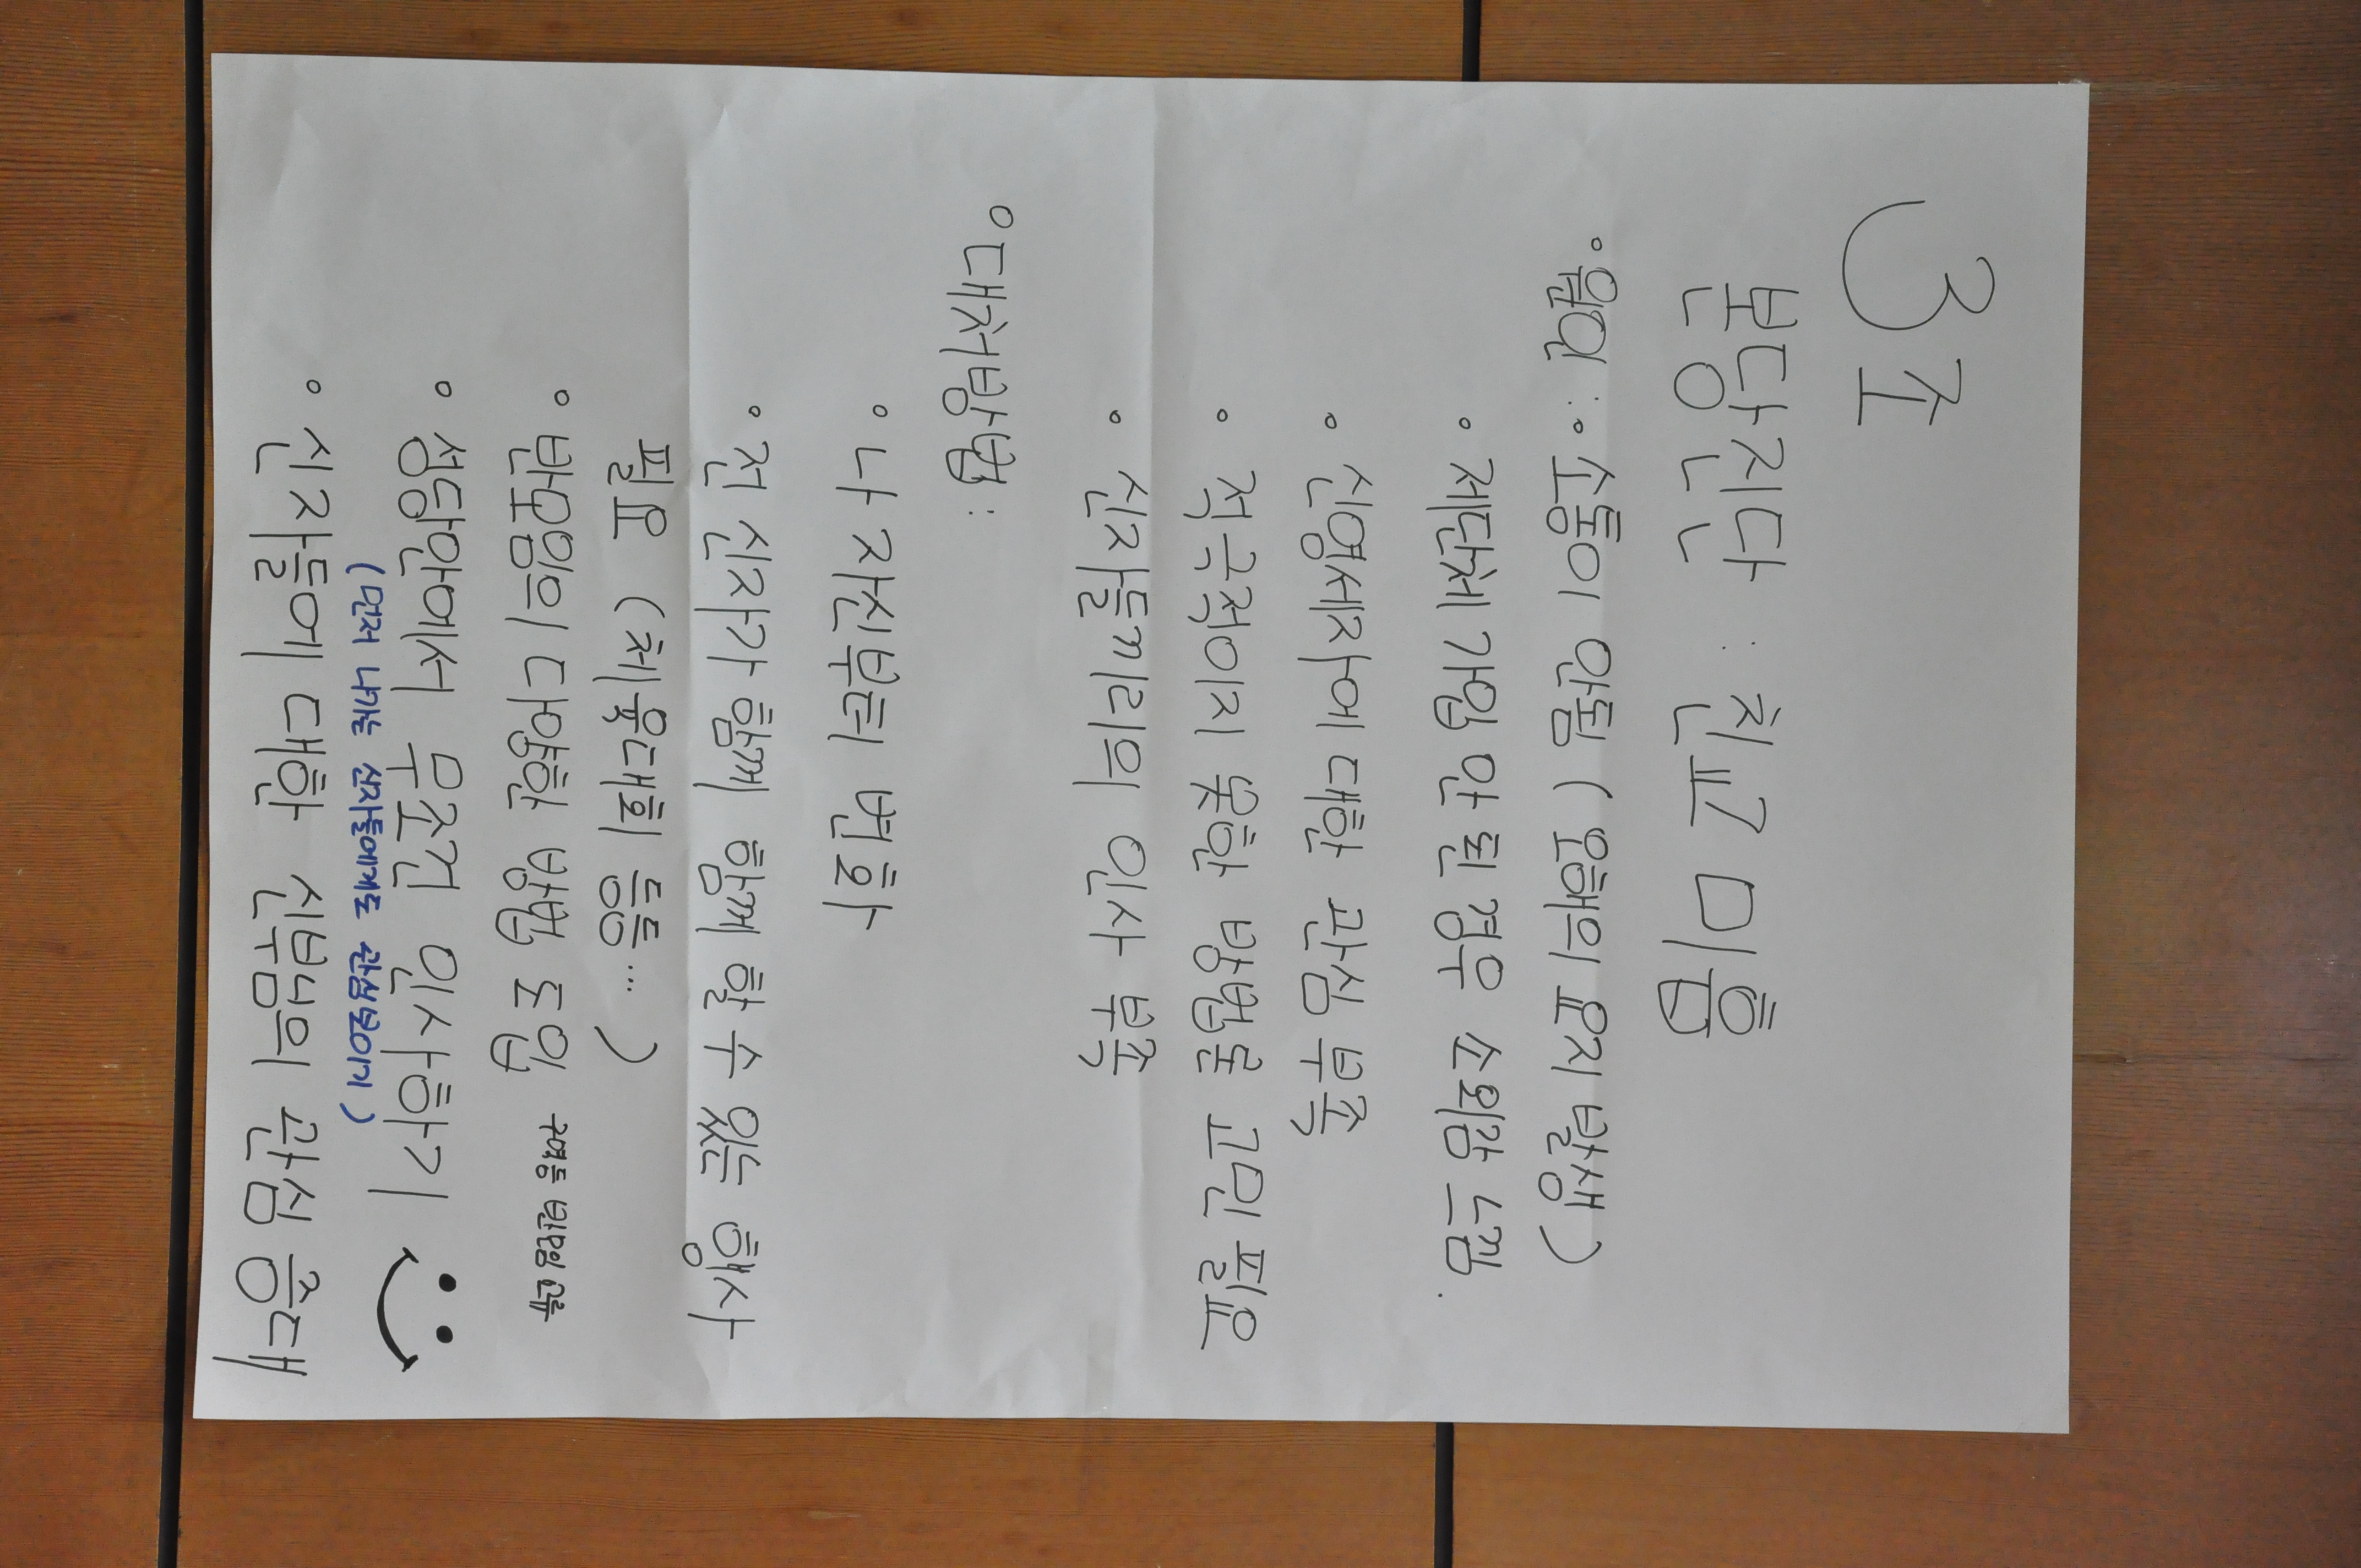 3조
본당진단 : 친교 미흡
◦ 원인 : ◦ 소통이 안됨 ( 오해의 요지 발생 )
◦ 제단체 가입 안 된 경우 소외감 느낌.
◦ 신영세자에 대한 관심 부족
◦ 적극적이지 못한 방법론 고민 필요
◦ 신자들끼리의 인사 부족
◦ 대처방법 :
◦ 나 자신부터 변화
◦ 전 신자가 함께 함께 할 수 있는 행사
필요 ( 체육대회 등... )
◦ 반모임의 다양한 방법 도입
◦ 성당안에서 무조건 인사하기
(먼저 나가는 신자들에게도 관심보이기)
◦ 신자들에 대한 신부님의 관심 증대